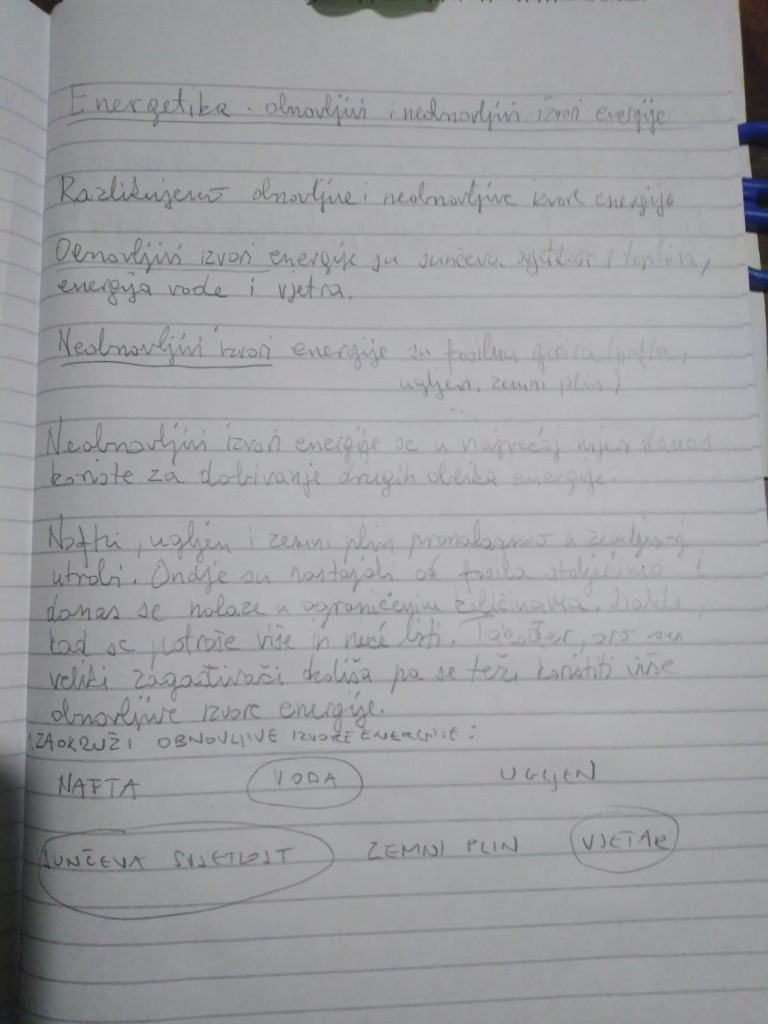 Energetika - obnovljivi i neobnovljivi izvori energije
Razlikujemo obnovljive i neobnovljive izvore energije
Obnovljivi izvori energije su sunčeva svjetlost i toplina,
energija vode i vjetra.
Neobnovljivi izvori energije su fosilna goriva (nafta,
ugljen, zemni plin)
Neobnovljivi izvori energije se u najvećoj mjeri danas
koriste za dobivanje drugih oblika energije.
Naftu, ugljen i zemni plin pronalazimo u zemljinoj
utrobi. Ondje su nastajali od fosila stoljećima i
danas se nalaze u ograničenim količinama. Dakle,
kad se potroše više ih neće biti. Također, ovo su
veliki zagađivači okoliša pa se teži koristiti više
obnovljive izvore energije.
1. ZAOKRUŽI OBNOVLJIVE IZVORE ENERGIJE:
NAFTA VODA UGLJEN
SUNČEVA SVJETLOST ZEMNI PLIN VJETAR